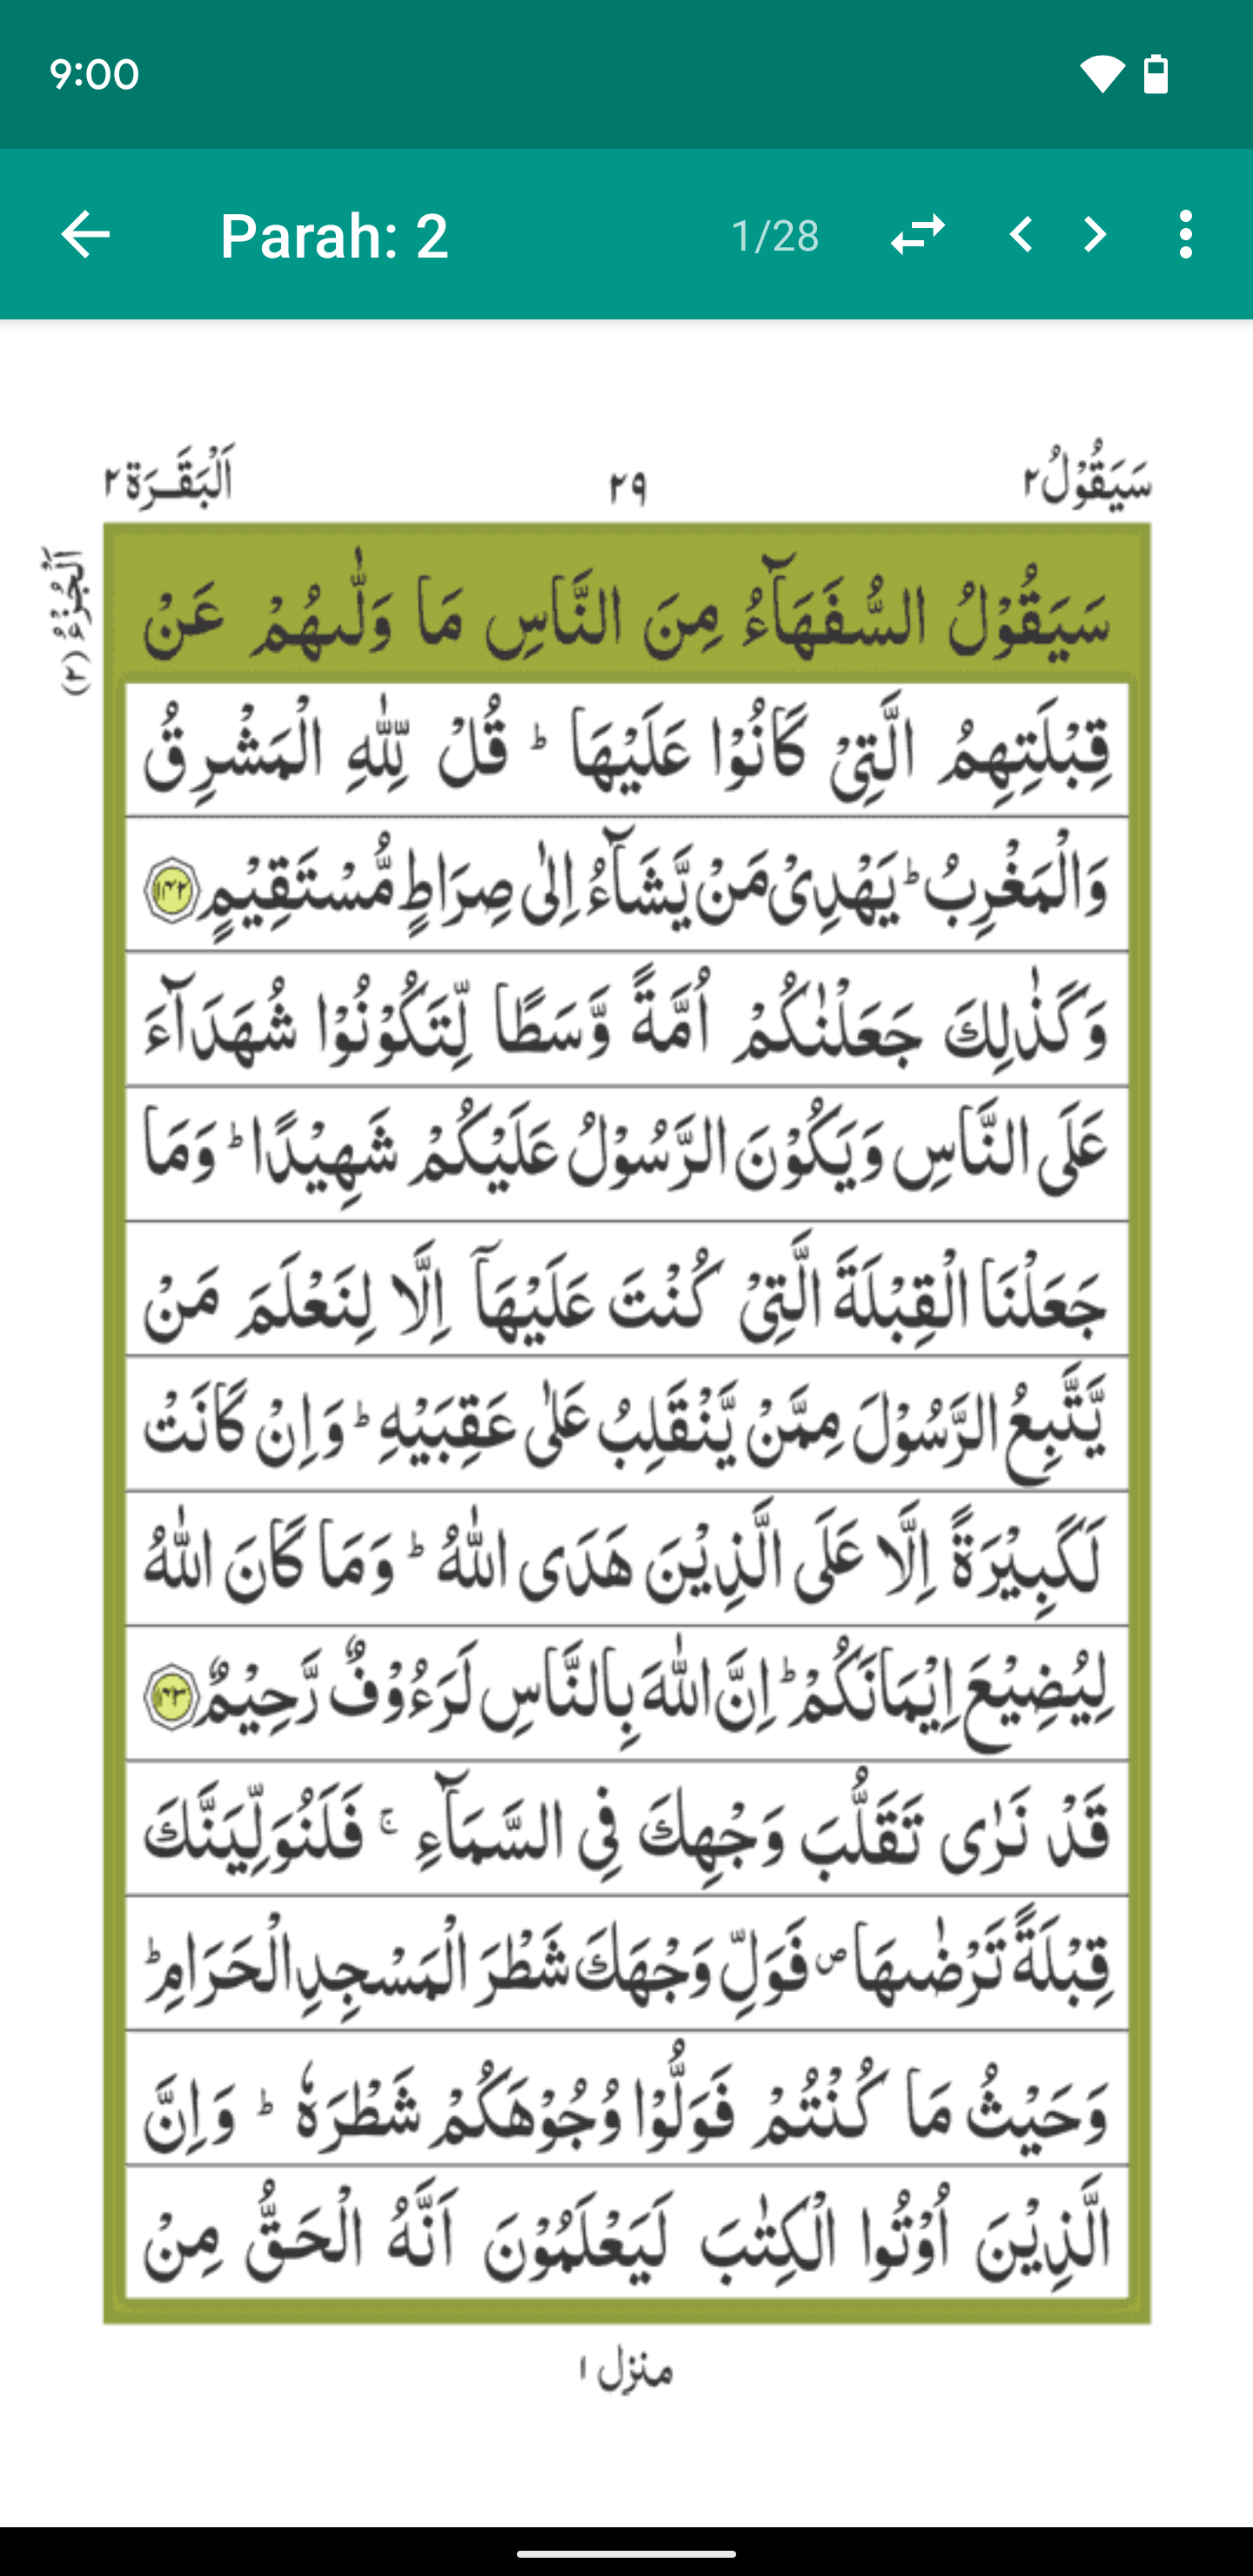 9:00
Parah: 2 1/28
سَيَقُوْلُ ٢ ٢٩ اَلْبَقَـرَة ٢
اَلْجُزْءُ (٢)
سَيَقُوْلُ السُّفَهَآءُ مِنَ النَّاسِ مَا وَلّٰىهُمْ عَنْ
قِبْلَتِهِمُ الَّتِىْ كَانُوْا عَلَيْهَا ؕ قُلْ لِّلّٰهِ الْمَشْرِقُ
وَالْمَغْرِبُ ؕ يَهْدِىْ مَنْ يَّشَآءُ اِلٰى صِرَاطٍ مُّسْتَقِيْمٍ ﴿۱۴۲﴾
وَكَذٰلِكَ جَعَلْنٰكُمْ اُمَّةً وَّسَطًا لِّتَكُوْنُوْا شُهَدَآءَ
عَلَى النَّاسِ وَيَكُوْنَ الرَّسُوْلُ عَلَيْكُمْ شَهِيْدًا ؕ وَمَا
جَعَلْنَا الْقِبْلَةَ الَّتِىْ كُنْتَ عَلَيْهَآ اِلَّا لِنَعْلَمَ مَنْ
يَّتَّبِعُ الرَّسُوْلَ مِمَّنْ يَّنْقَلِبُ عَلٰى عَقِبَيْهِ ؕ وَاِنْ كَانَتْ
لَكَبِيْرَةً اِلَّا عَلَى الَّذِيْنَ هَدَى اللّٰهُ ؕ وَمَا كَانَ اللّٰهُ
لِيُضِيْعَ اِيْمَانَكُمْ ؕ اِنَّ اللّٰهَ بِالنَّاسِ لَرَءُوْفٌ رَّحِيْمٌ ﴿۱۴۳﴾
قَدْ نَرٰى تَقَلُّبَ وَجْهِكَ فِى السَّمَآءِ ۚ فَلَنُوَلِّيَنَّكَ
قِبْلَةً تَرْضٰىهَا ۪ فَوَلِّ وَجْهَكَ شَطْرَ الْمَسْجِدِ الْحَرَامِ ؕ
وَحَيْثُ مَا كُنْتُمْ فَوَلُّوْا وُجُوْهَكُمْ شَطْرَهٗ ؕ وَاِنَّ
الَّذِيْنَ اُوْتُوا الْكِتٰبَ لَيَعْلَمُوْنَ اَنَّهُ الْحَقُّ مِنْ
منزل ۱